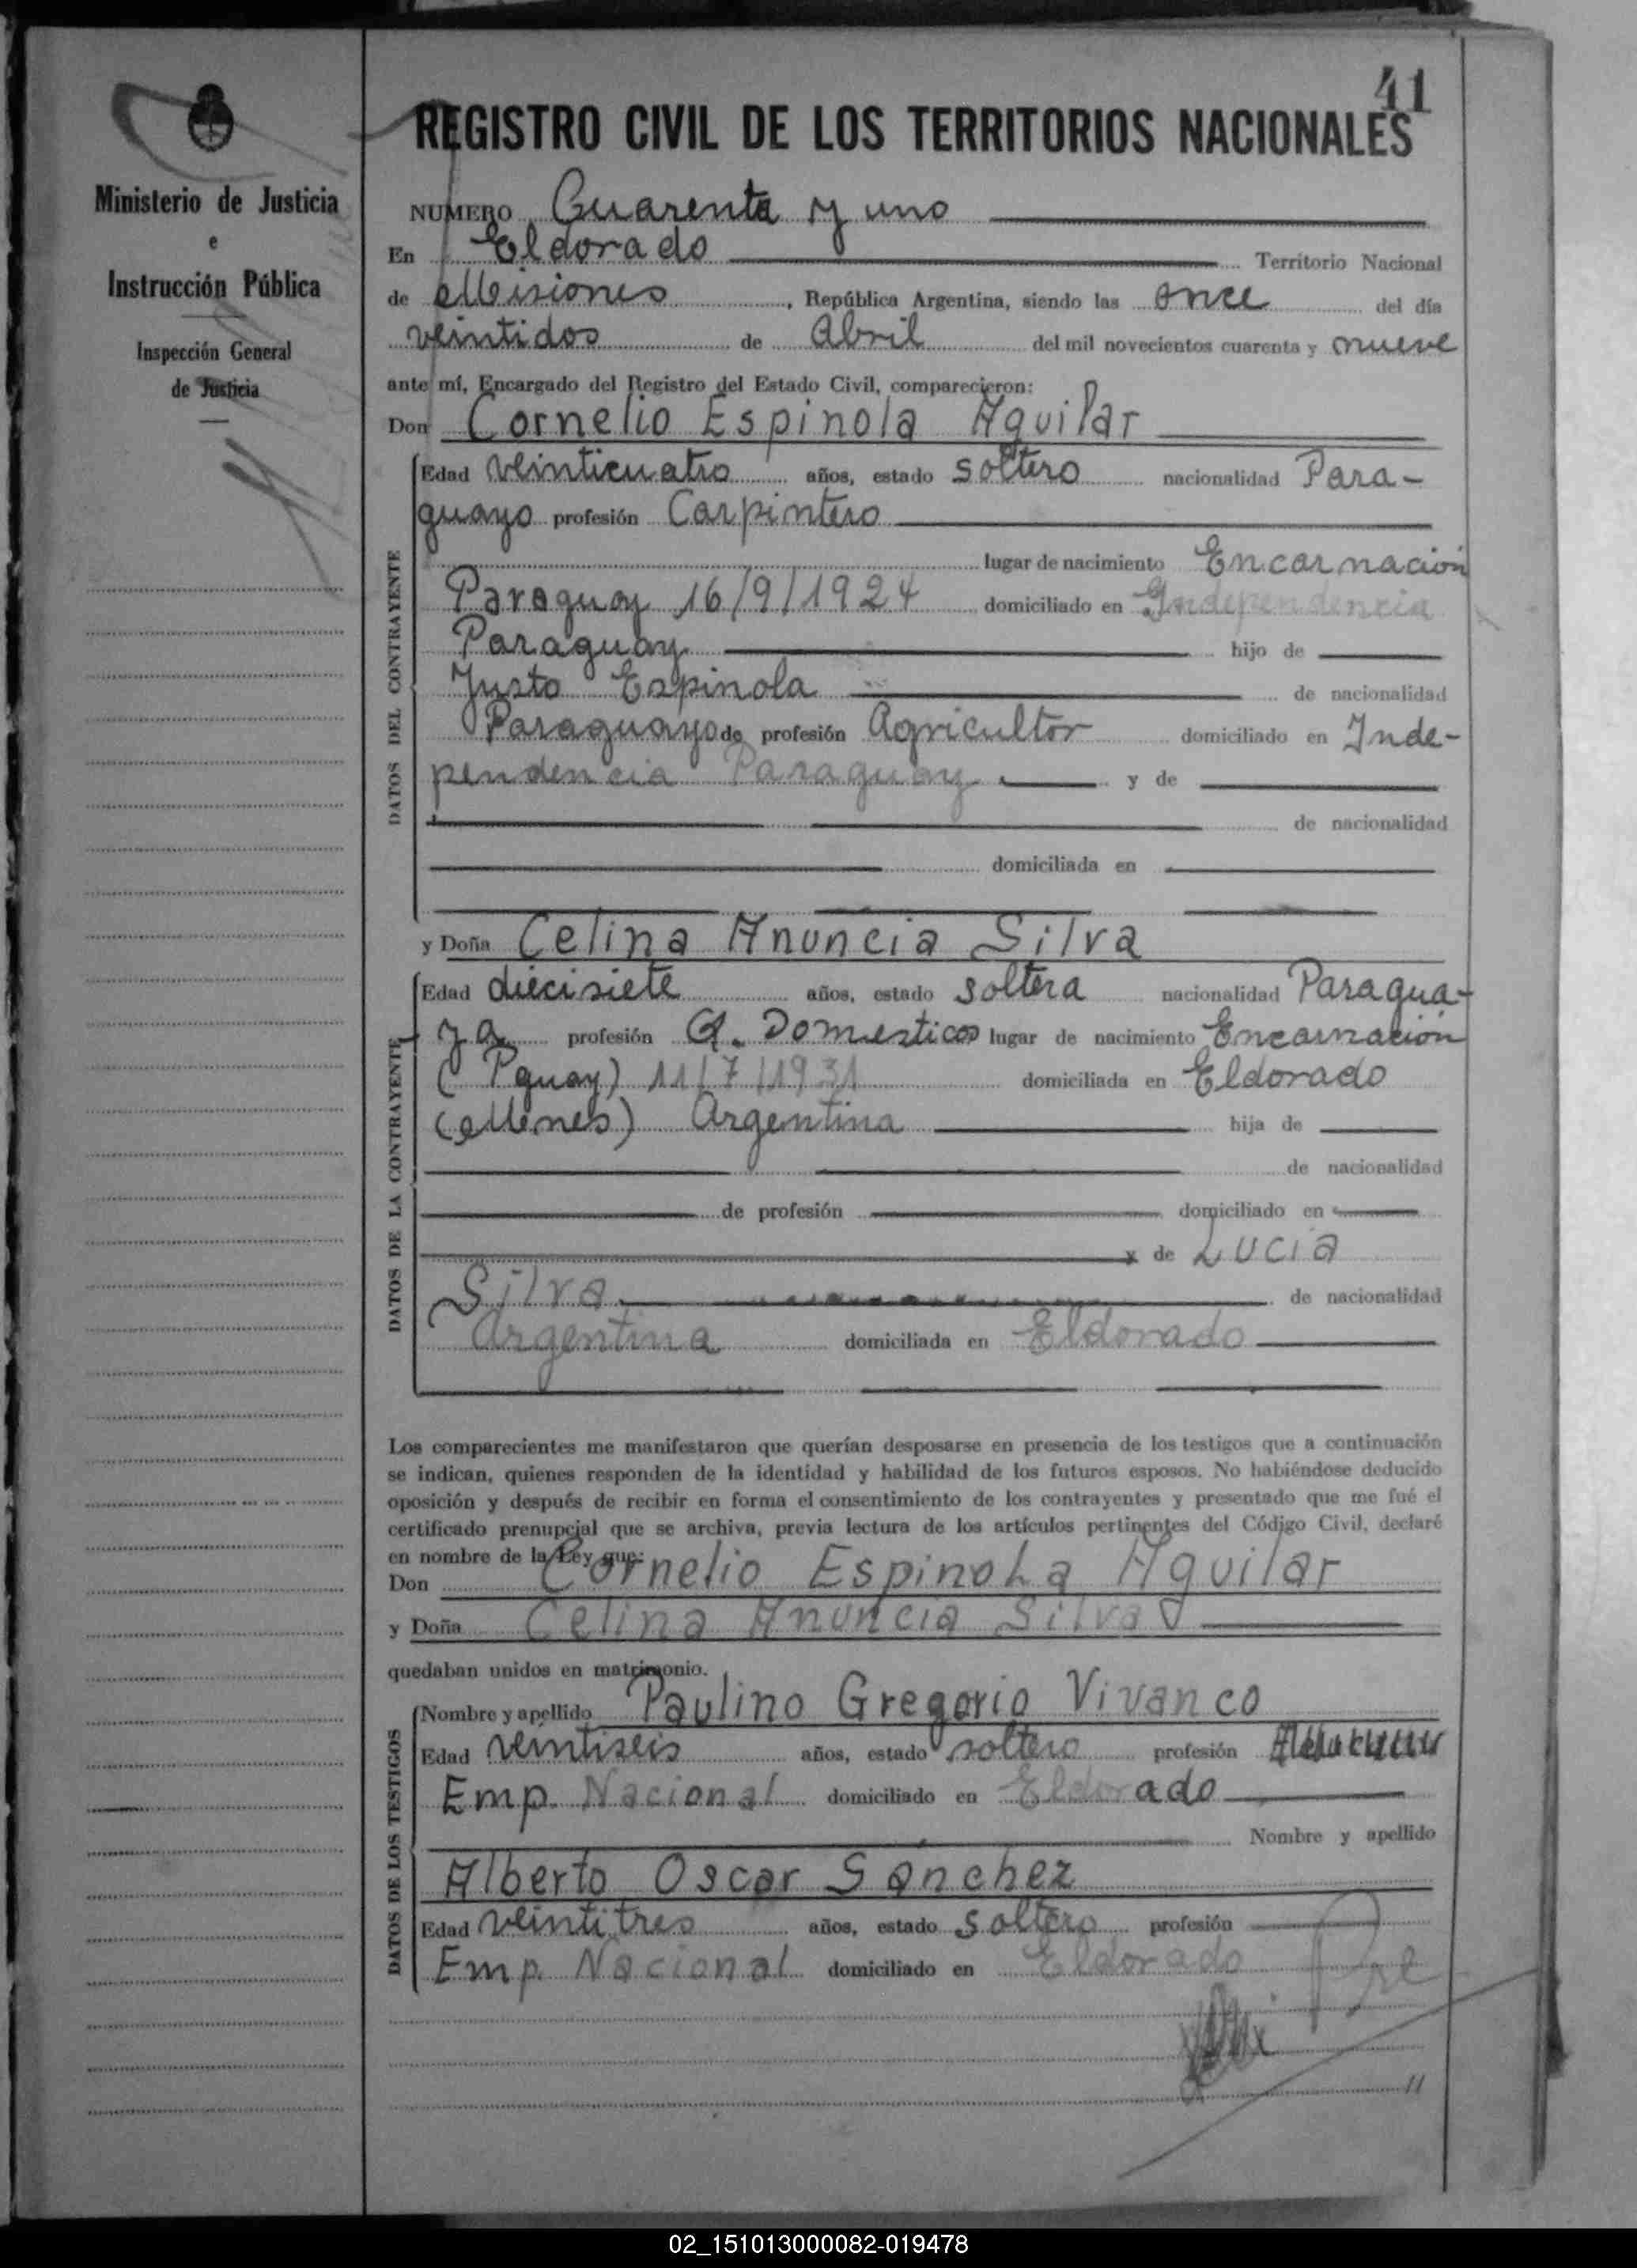 41
REGISTRO CIVIL DE LOS TERRITORIOS NACIONALES
Ministerio de Justicia
e
Instrucción Pública
Inspección General
de Justicia
NUMERO Cuarenta y uno
En Eldorado Territorio Nacional
de Misiones, República Argentina, siendo las once del día
veintidos de Abril del mil novecientos cuarenta y nueve
ante mí, Encargado del Registro del Estado Civil, comparecieron:
Don Cornelio Espinola Aguilar
DATOS DEL CONTRAYENTE
Edad veinticuatro años, estado soltero nacionalidad Para-
guayo profesión Carpintero
lugar de nacimiento Encarnación
Paraguay 16/9/1924 domiciliado en Independencia
Paraguay hijo de
Justo Espinola de nacionalidad
Paraguayo de profesión Agricultor domiciliado en Inde-
pendencia Paraguay y de
de nacionalidad
domiciliada en
y Doña Celina Anuncia Silva
DATOS DE LA CONTRAYENTE
Edad diecisiete años, estado soltera nacionalidad Paragua-
ya profesión Q. Domesticos lugar de nacimiento Encarnación
(Pguay) 11/7/1931 domiciliada en Eldorado
(Mnes) Argentina hija de
de nacionalidad
de profesión domiciliado en
y de Lucia
Silva de nacionalidad
Argentina domiciliada en Eldorado
Los comparecientes me manifestaron que querían desposarse en presencia de los testigos que a continuación
se indican, quienes responden de la identidad y habilidad de los futuros esposos. No habiéndose deducido
oposición y después de recibir en forma el consentimiento de los contrayentes y presentado que me fué el
certificado prenupcial que se archiva, previa lectura de los artículos pertinentes del Código Civil, declaré
en nombre de la Ley que:
Don Cornelio Espinola Aguilar
y Doña Celina Anuncia Silva
quedaban unidos en matrimonio.
DATOS DE LOS TESTIGOS
Nombre y apellido Paulino Gregorio Vivanco
Edad veintiseis años, estado soltero profesión
Emp. Nacional domiciliado en Eldorado
Nombre y apellido
Alberto Oscar Sanchez
Edad veintitres años, estado soltero profesión
Emp. Nacional domiciliado en Eldorado
02_151013000082-019478